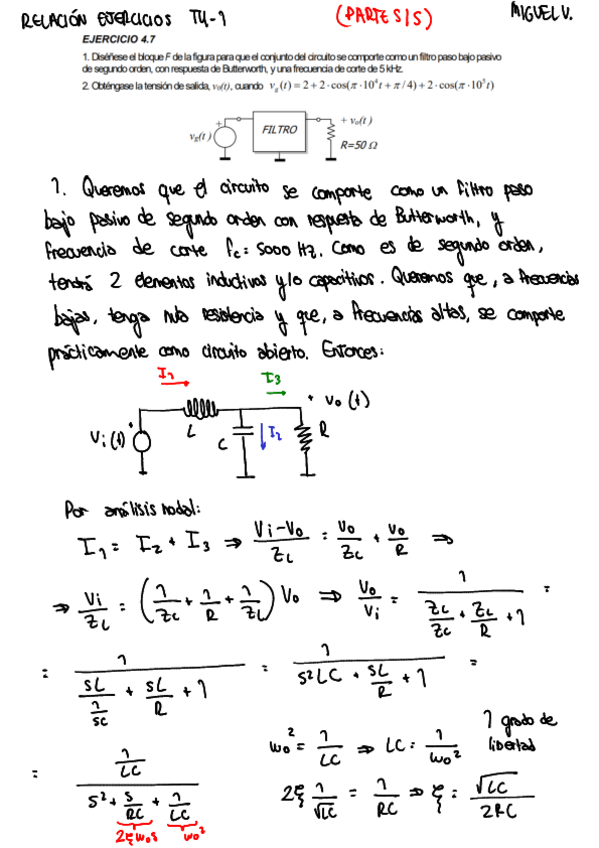 RELACIÓN EJERCICIOS T4-1 (PARTE 5/5) MIGUEL V.
EJERCICIO 4.7
1. Diséñese el bloque F de la figura para que el conjunto del circuito se comporte como un filtro paso bajo pasivo
de segundo orden, con respuesta de Butterworth, y una frecuencia de corte de 5 kHz.
2. Obténgase la tensión de salida, v₀(t), cuando v_g(t) = 2 + 2·cos(π·10⁴t + π/4) + 2·cos(π·10⁵t)
+ + v₀(t)
v_g(t) FILTRO
R=50 Ω
1. Queremos que el circuito se comporte como un filtro paso
bajo pasivo de segundo orden con respuesta de Butterworth, y
frecuencia de corte fc = 5000 Hz. Como es de segundo orden,
tendrá 2 elementos inductivos y/o capacitivos. Queremos que, a frecuencias
bajas, tenga nula resistencia y que, a frecuencias altas, se comporte
prácticamente como circuito abierto. Entonces:
I₁ I₃
+ V₀(t)
Vi(t) + L C I₂ R
Por análisis nodal:
I₁ = I₂ + I₃ ⇒ (Vi-V₀)/Z_L = V₀/Z_C + V₀/R ⇒
⇒ Vi/Z_L = (1/Z_C + 1/R + 1/Z_L) V₀ ⇒ V₀/Vi = 1/(Z_L/Z_C + Z_L/R + 1) =
= 1/(SL/(1/SC) + SL/R + 1) = 1/(S²LC + SL/R + 1) =
= (1/LC)/(S² + S/RC + 1/LC)
2ξω₀s ω₀²
ω₀² = 1/LC ⇒ LC = 1/ω₀² 1 grado de
libertad
2ξ 1/√LC = 1/RC ⇒ ξ = √LC/2RC